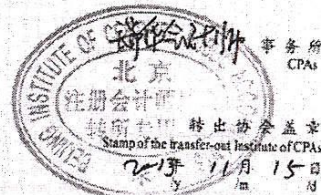 瑞华会计师 事务所
CPAs
BEIJING INSTITUTE OF
北京
注册会计师
转所专用
转出协会盖章
Stamp of the transfer-out Institute of CPAs
2013年 11月 15日
y m d